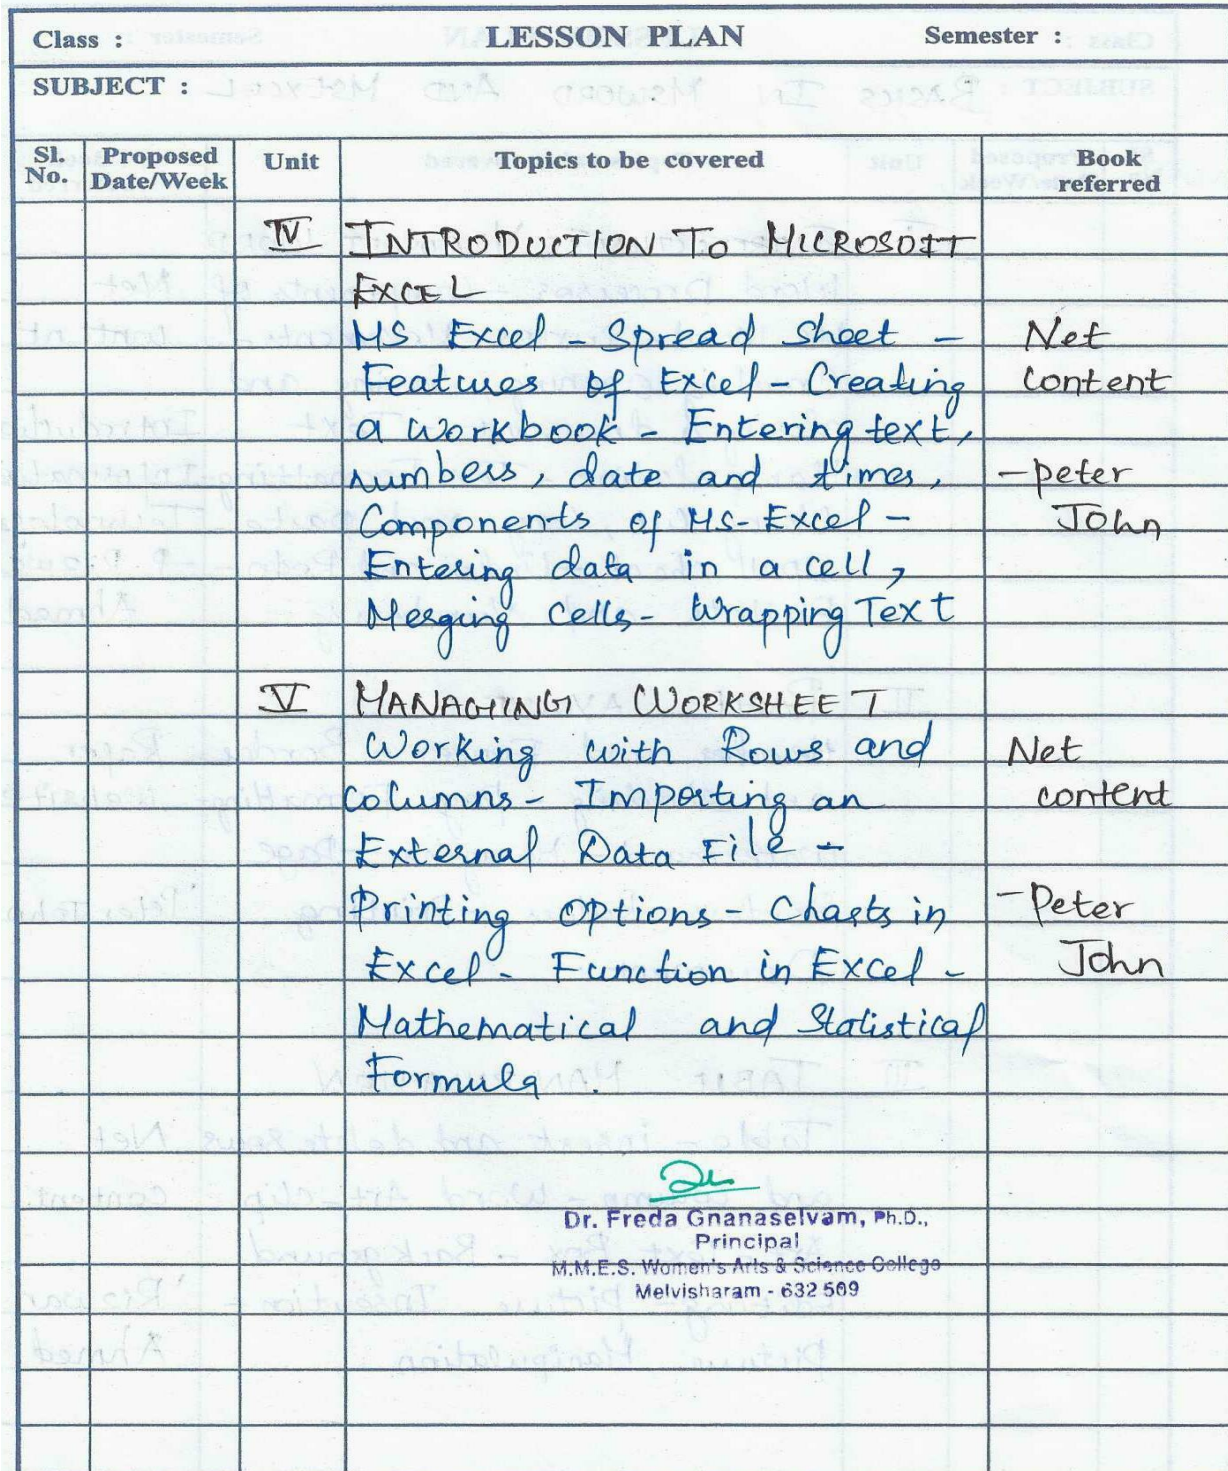 Class : LESSON PLAN Semester :
SUBJECT :
Sl. No. Proposed Date/Week Unit Topics to be covered Book referred
IV INTRODUCTION TO MICROSOFT
EXCEL
MS Excel - Spread sheet - Net
Features of Excel - Creating content
a workbook - Entering text,
numbers, date and times, - Peter
Components of MS-Excel - John
Entering data in a cell,
Merging cells - Wrapping Text
V MANAGING WORKSHEET
Working with Rows and Net
columns - Importing an content
External Data File -
Printing options - Charts in - Peter
Excel - Function in Excel - John
Mathematical and Statistical
Formula .
Dr. Freda Gnanaselvam, Ph.D.,
Principal
M.M.E.S. Women's Arts & Science College
Melvisharam - 632 509